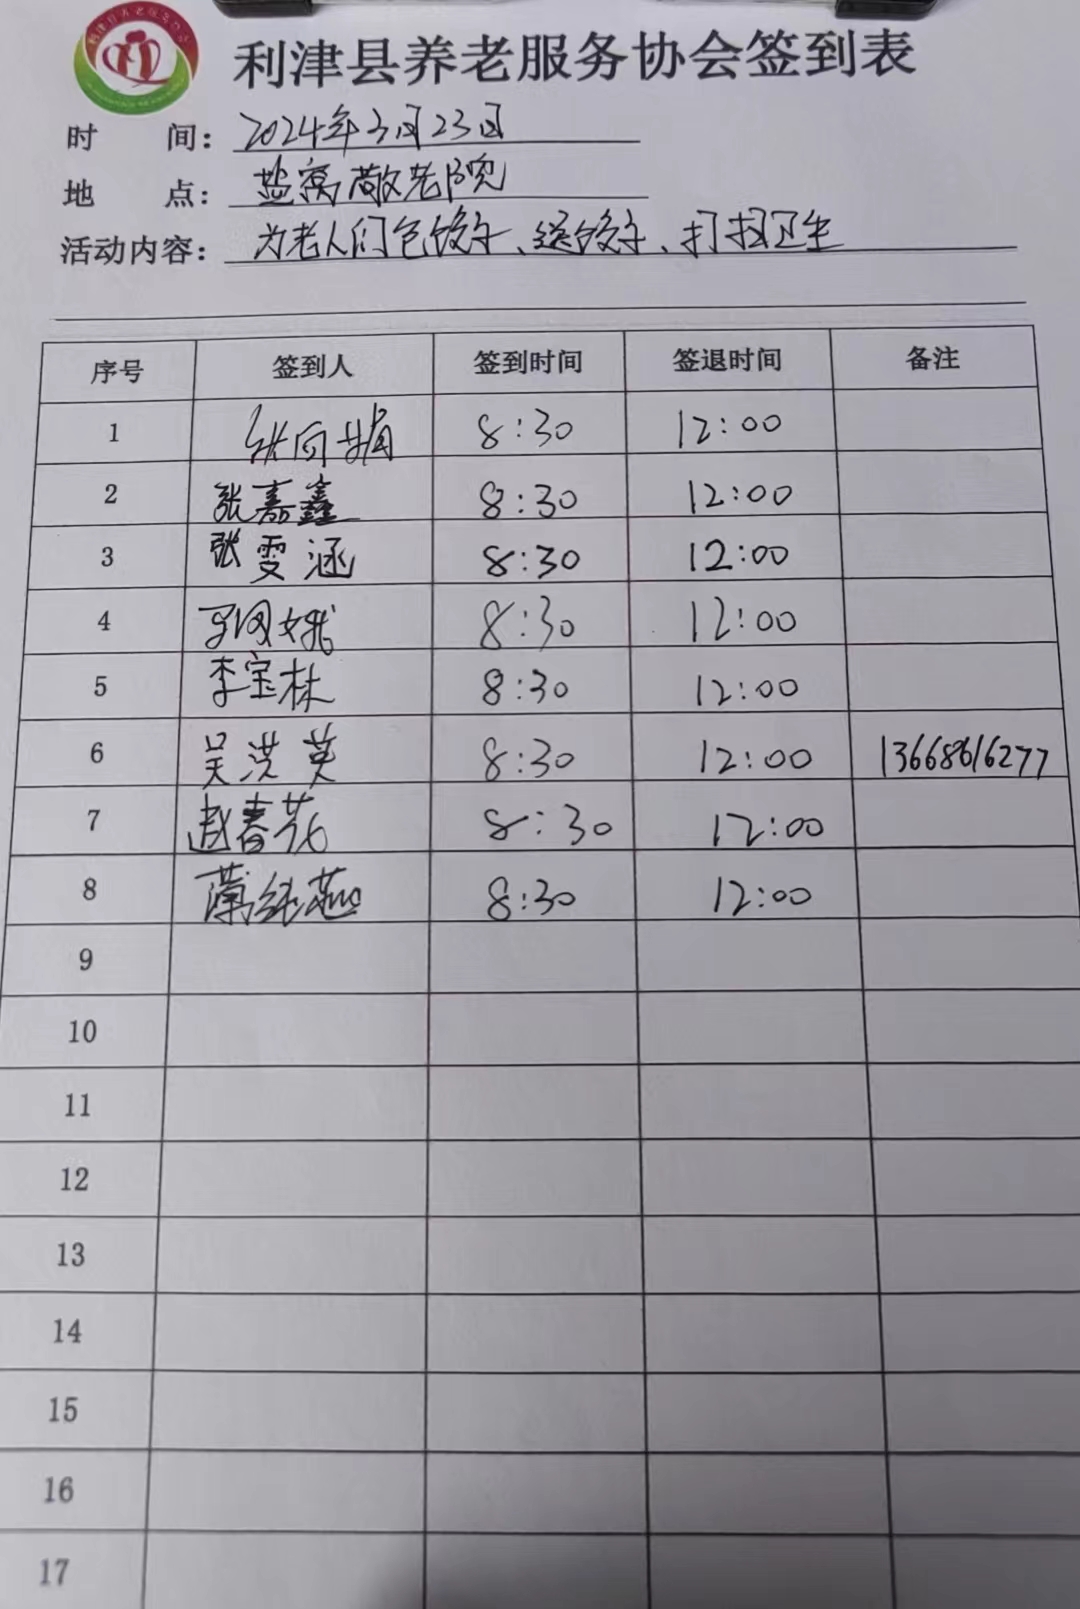 利津县养老服务协会签到表
时 间: 2024年3月23日
地 点: 盐窝敬老院
活动内容: 为老人们包饺子、送饺子、打扫卫生
序号 签到人 签到时间 签退时间 备注
1 8:30 12:00
2 张嘉鑫 8:30 12:00
3 张雯涵 8:30 12:00
4 8:30 12:00
5 李宝林 8:30 12:00
6 吴洪英 8:30 12:00 13668616277
7 赵春花 8:30 12:00
8 8:30 12:00
9
10
11
12
13
14
15
16
17